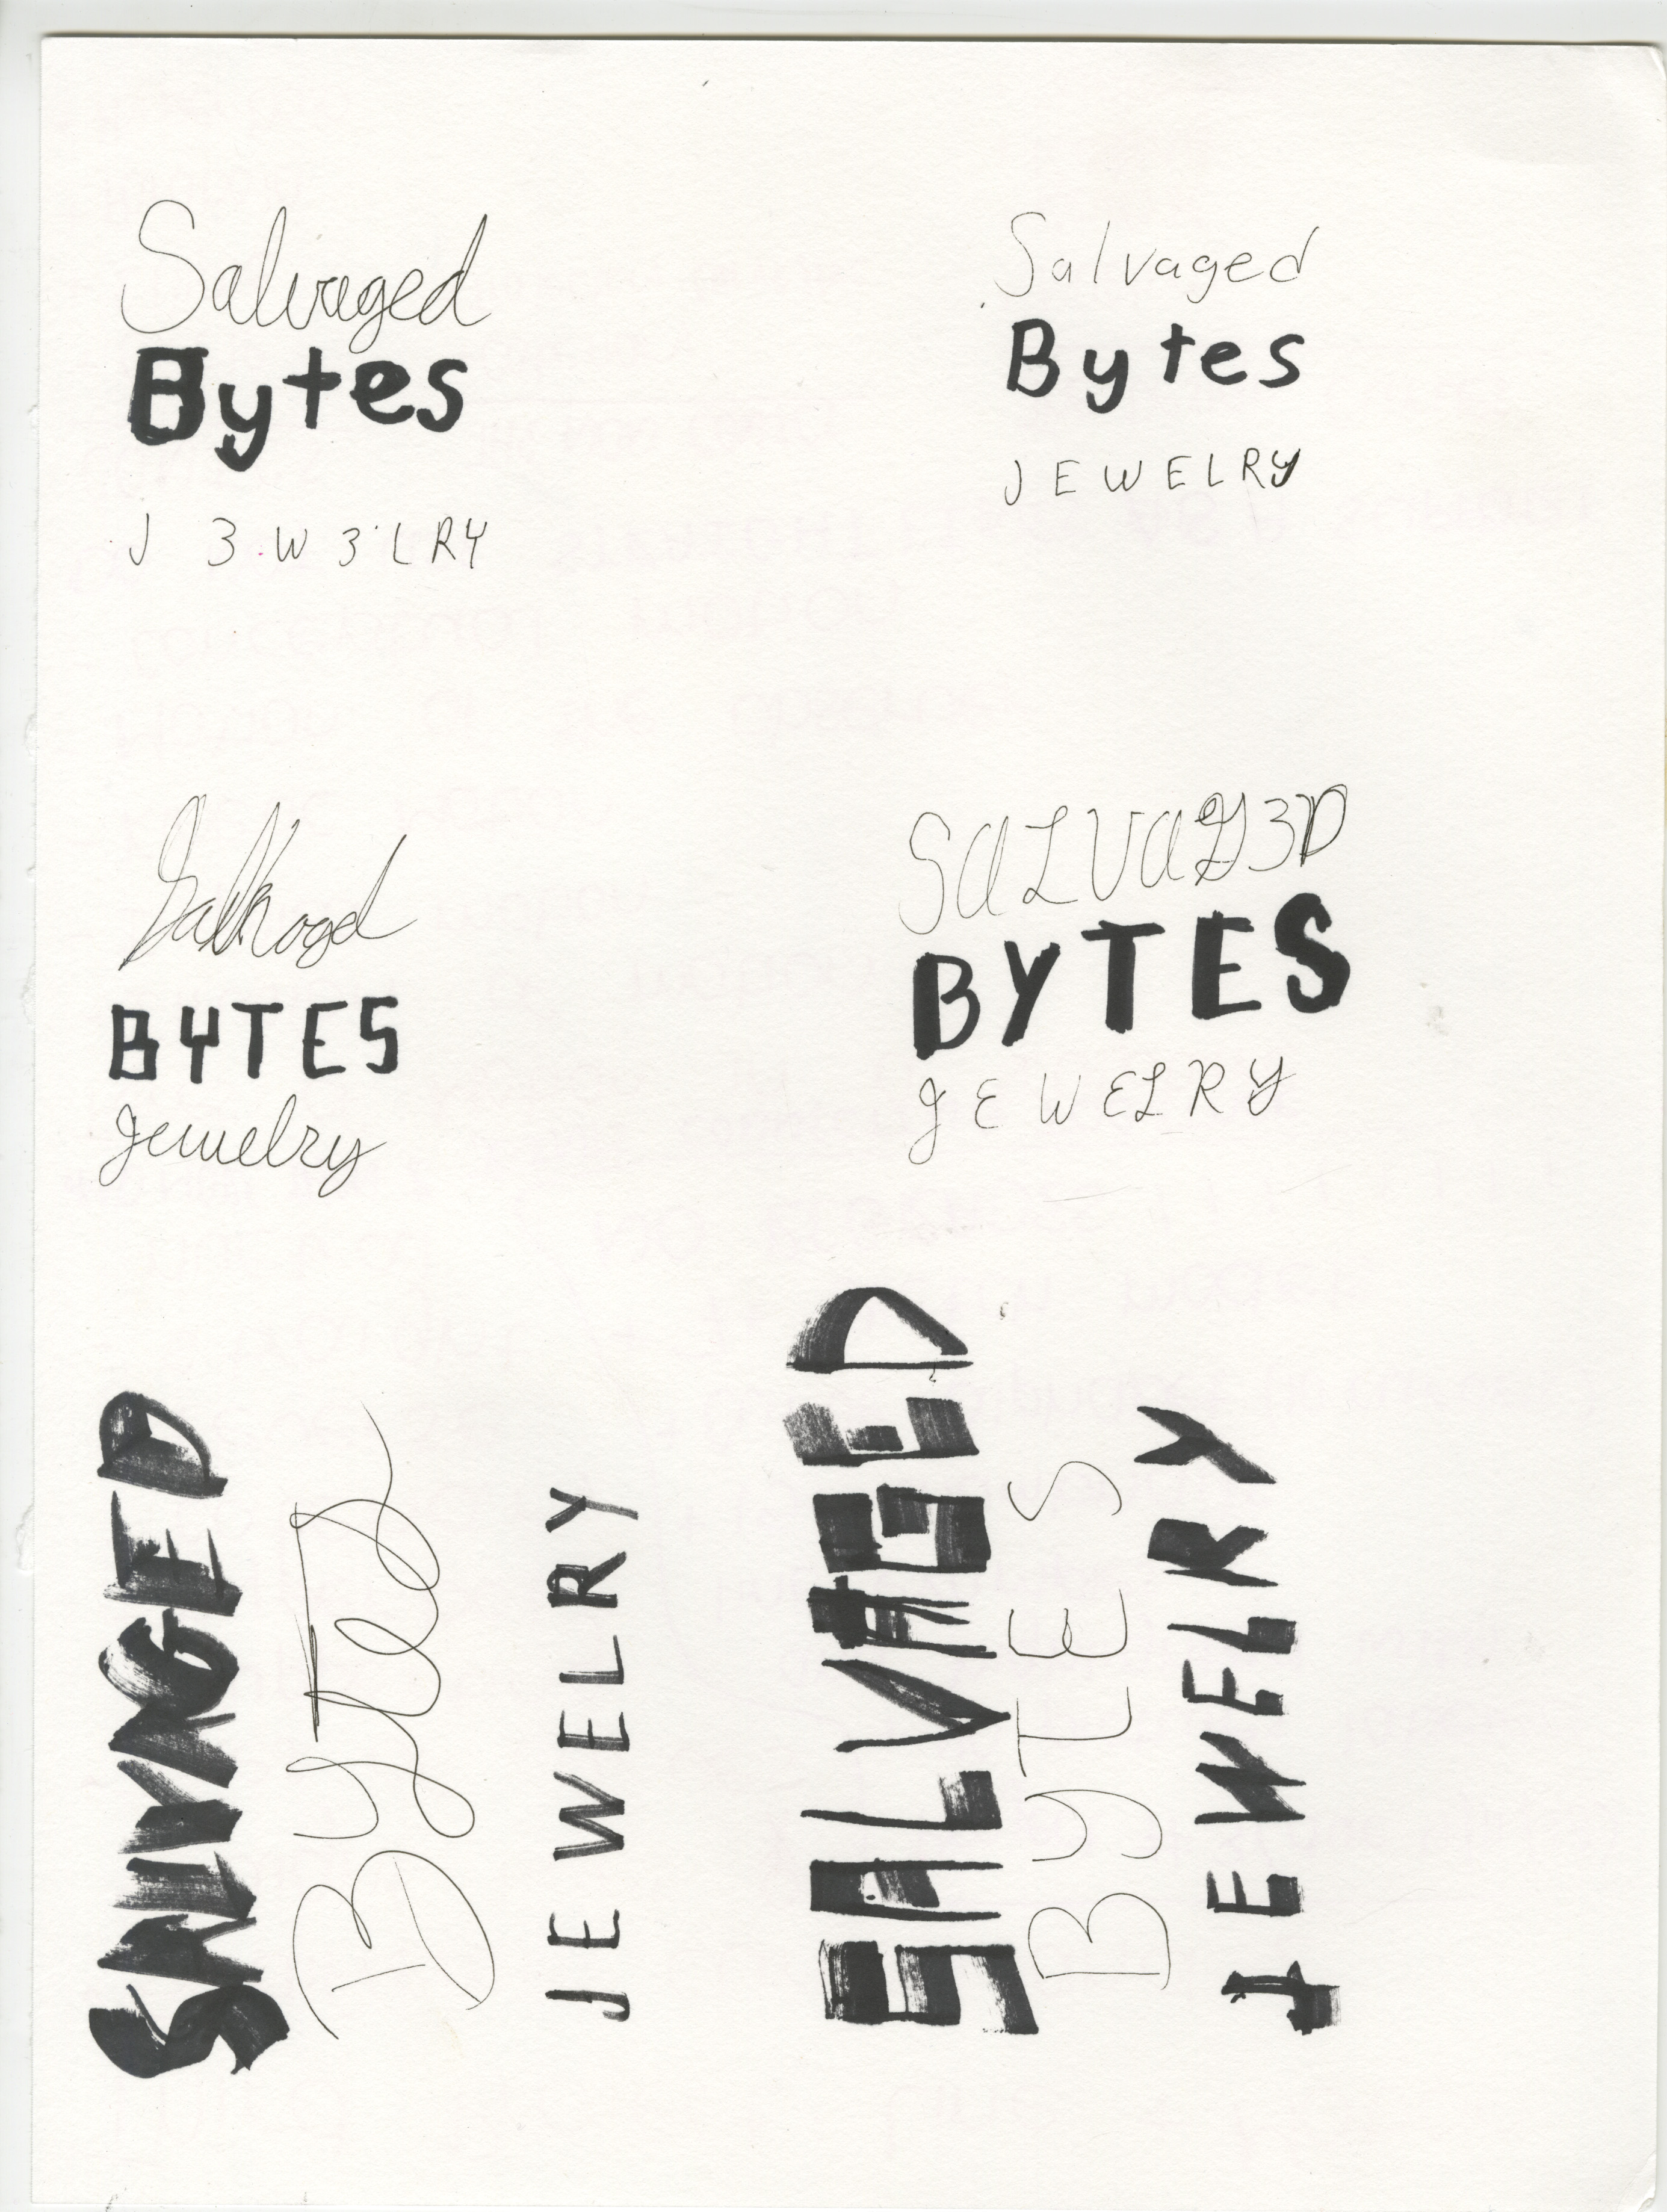 Salvaged
Bytes
J 3 W 3 L R Y
Salvaged
Bytes
JEWELRY
BYTES
Jewelry
SALVAG3D
BYTES
JEWELRY
SALVAGED
Bytes
JEWELRY
SALVAGED
ByTES
JEWELRY